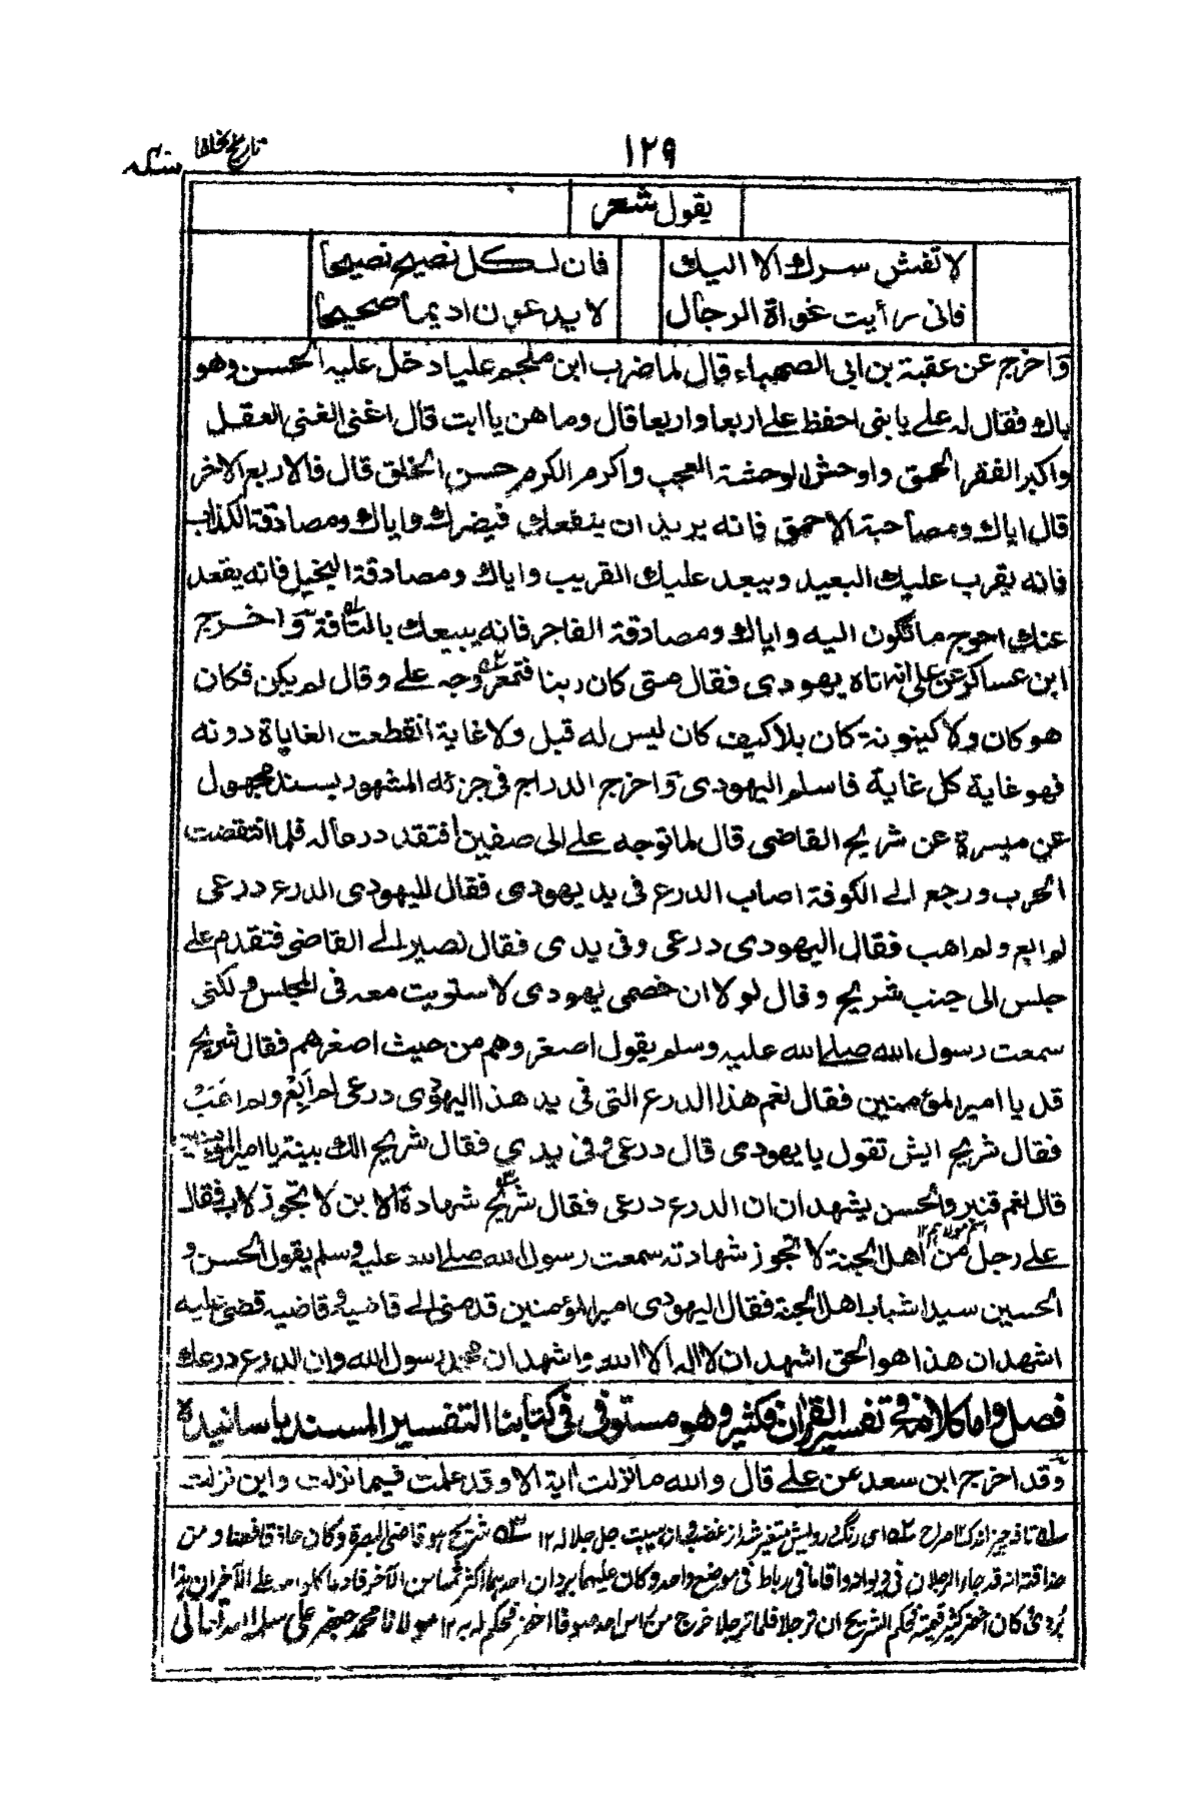 ١٢٩
تاريخ الخلفا
يقول شعر
لا تفش سرك الا اليك
فان لكل نصيح نصيحا
فانى رأيت غواة الرجال
لا يدعون اديما صحيحا
وَاخرج عن عقبة بن ابى الصهباء قال لما ضرب ابن ملجم عليا دخل عليه الحسن وهو
باك فقال له على يا بنى احفظ على اربعا واربعا قال وما هن يا ابت قال اغنى الغنى العقل
واكبر الفقر الحمق واوحش الوحشة العجب واكرم الكرم حسن الخلق قال فالاربع الاخر
قال اياك ومصاحبة الاحمق فانه يريد ان ينفعك فيضرك واياك ومصادقة الكذاب
فانه يقرب عليك البعيد ويبعد عليك القريب واياك ومصادقة البخيل فانه يقعد
عنك احوج ما تكون اليه واياك ومصادقة الفاجر فانه يبيعك بالتافة وَاخرج
ابن عساكر عن على انه اتاه يهودى فقال متى كان ربنا فتمعر وجه على وقال لم يكن فكان
هو كان ولا كينونة كان بلا كيف كان ليس له قبل ولا غاية انقطعت الغاياة دونه
فهو غاية كل غاية فاسلم اليهودى وَاخرج الدراج فى جزئه المشهور بسند مجهول
عن ميسرة عن شريح القاضى قال لما توجه على الى صفين افتقد درعا له فلما انقضت
الحرب ورجع الى الكوفة اصاب الدرع فى يد يهودى فقال لليهودى الدرع درعى
لم ابع ولم اهب فقال اليهودى درعى وفى يدى فقال نصير الى القاضى فتقدم على
جلس الى جنب شريح وقال لولا ان خصمى يهودى لاستويت معه فى المجلس ولكنى
سمعت رسول الله صلى الله عليه وسلم يقول اصغروهم من حيث اصغرهم فقال شريح
قد يا امير المؤمنين فقال نعم هذا الدرع التى فى يد هذا اليهودى درعى لم اَبِعْ ولم اهَبْ
فقال شريح ايش تقول يا يهودى قال درعى وفى يدي فقال شريح الك بينة يا امير المؤمنين
قال نعم قنبر والحسن يشهدان ان الدرع درعى فقال شريح شهادة الابن لا تجوز لاب فقال
على رجل من اهل الجنة لا تجوز شهادته سمعت رسول الله صلى الله عليه وسلم يقول الحسن و
الحسين سيدا شباب اهل الجنة فقال اليهودى امير المؤمنين قدمنى الى قاضيه وقاضيه قضى عليه
اشهد ان هذا هو الحق اشهد ان لا اله الا الله واشهد ان محمد رسول الله وان الدرع درعك
فصل واما كلامه فى تفسير القرآن فكثير وهو مستوفى فى كتابنا التفسير المسند باسانيده
وَقد اخرج ابن سعد عن على قال والله ما نزلت اية الا وقد علمت فيما نزلت واين نزلت
تافه چيز اندك صراح اى رنگ رويش متغير شد از غضب جل جلاله ١٢ شريح هو قاضى البصرة وكان حاذقا فطنا ومن
حذاقته انه قد جاء الرجلان فى واقاما فى رباط فى موضع واحد وكان عليهما بردان احدهما اكثر ثمنا من الآخر على الآخر ان
بردى كان اخضر كثير قيمة فحكم الشريح ان ترجلا فلما ترجلا خرج من راس احد صوفا اخضر فحكم له به ١٢ مولانا محمد على سلمه الله تعالى